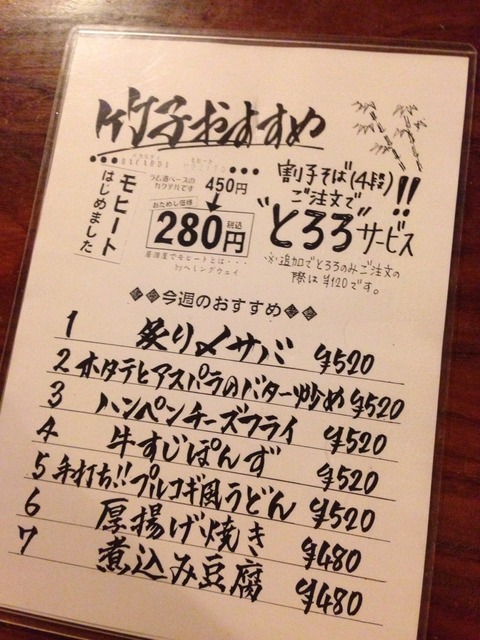 竹子おすすめ
バカルディ モヒート
BACARDI
モヒート
はじめました
ラム酒ベースの
カクテルです
450円
おためし価格
280円 税込
居酒屋でモヒートとは・・・
byヘミングウェイ
割子そば(4段)
ご注文で
"とろろ"サービス!!
※追加でとろろのみご注文の
際は¥120です。
今週のおすすめ
1 炙り〆サバ ¥520
2 ホタテとアスパラのバター炒め ¥520
3 ハンペンチーズフライ ¥520
4 牛すじぽんず ¥520
5 手打ち!!プルコギ風うどん ¥520
6 厚揚げ焼き ¥480
7 煮込み豆腐 ¥480